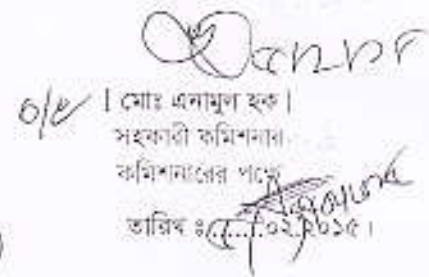 [ মোঃ এনামুল হক ]
সহকারী কমিশনার
কমিশনারের পক্ষে
তারিখ ঃ.......০২.২০১৫।